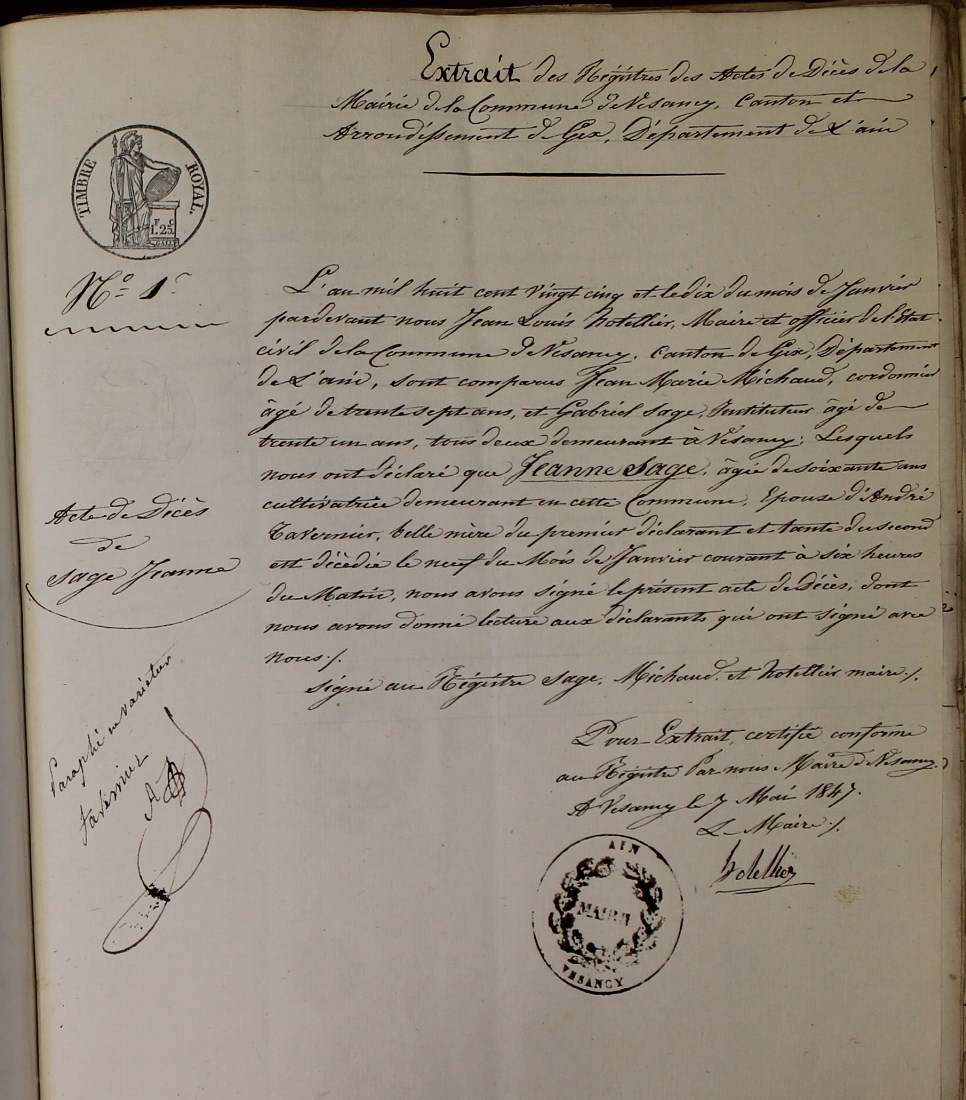 Extrait des Régistres des Actes de Décès de la
Mairie de la Commune de Vésancy, Canton et
Arroudissement de Gex, Département de L'ain
TIMBRE ROYAL.
F. C.
1.25.
N.° 1.er
L'an mil huit cent vingt cinq et le dix du mois de Janvier
pardevant nous Jean Louis hotellier, Maire et officier de l'Etat
civil de la Commune de Vésancy, Canton de Gex, Département
de L'ain, sont comparus Jean Marie Michaud, cordonnier
âgé de trente sept ans, et Gabriel Sage, Instituteur âgé de
trente un ans, tous deux demeurant à Vésancy; Lesquels
nous ont déclaré que Jeanne Sage, âgée de soixante ans
cultivatrice demeurant en cette Commune, Epouse d'André
Tavernier, belle mère du premier déclarant et tante du second
est décédée le neuf du Mois de Janvier courant à six heures
du Matin, nous avons signé le présent acte de Décès, dont
nous avons donné lecture aux déclarants qui ont signé avec
nous ./.
Acte de Décès
de
Sage Jeanne
signé au Régistre Sage, Michaud, et hotellier maire ./.
Paraphé ne varietur
Pour Extrait, certifié conforme
au Régistre Par nous Maire de Vésancy.
A Vésancy le 7 Mai 1847.
Le Maire ./.
hotellier
AIN
MAIRIE
VESANCY